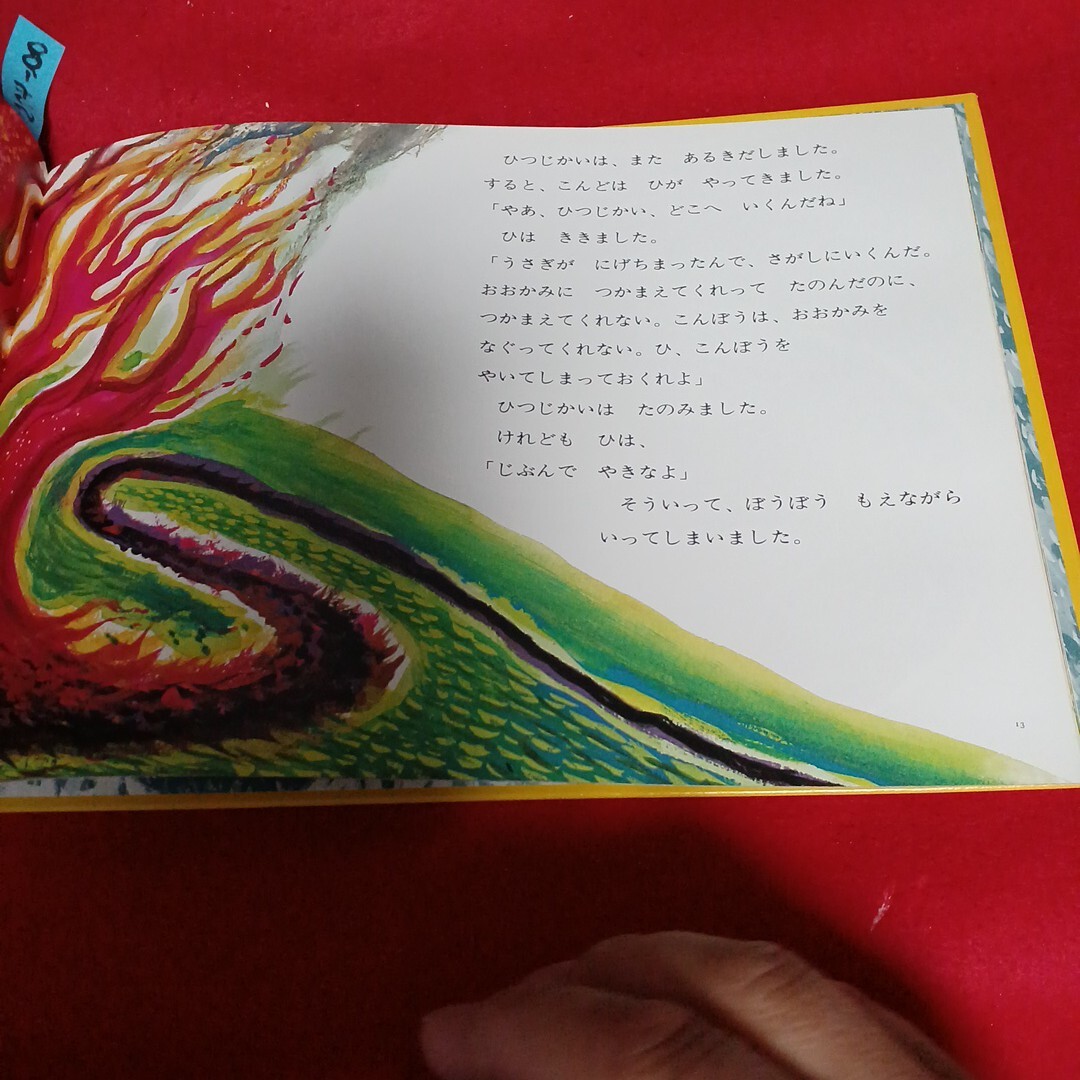 ひつじかいは、また　あるきだしました。
すると、こんどは　ひが　やってきました。
「やあ、ひつじかい、どこへ　いくんだね」
ひは　ききました。
「うさぎが　にげちまったんで、さがしにいくんだ。
おおかみに　つかまえてくれって　たのんだのに、
つかまえてくれない。こんぼうは、おおかみを
なぐってくれない。ひ、こんぼうを
やいてしまっておくれよ」
ひつじかいは　たのみました。
けれども　ひは、
「じぶんで　やきなよ」
そういって、ぼうぼう　もえながら
いってしまいました。
13